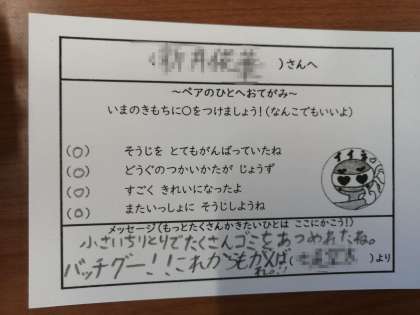 )さんへ
～ペアのひとへおてがみ～
いまのきもちに○をつけましょう！（なんこでもいいよ）
(○) そうじを とてもがんばっていたね
(○) どうぐのつかいかたが じょうず
(○) すごく きれいになったよ
(○) またいっしょに そうじしようね
メッセージ（もっとたくさんかきたいひとは ここにかこう！）
小さいちりとりでたくさんゴミをあつめれたね。
バッチグー！！これからもがんば
れ。！！
( )より